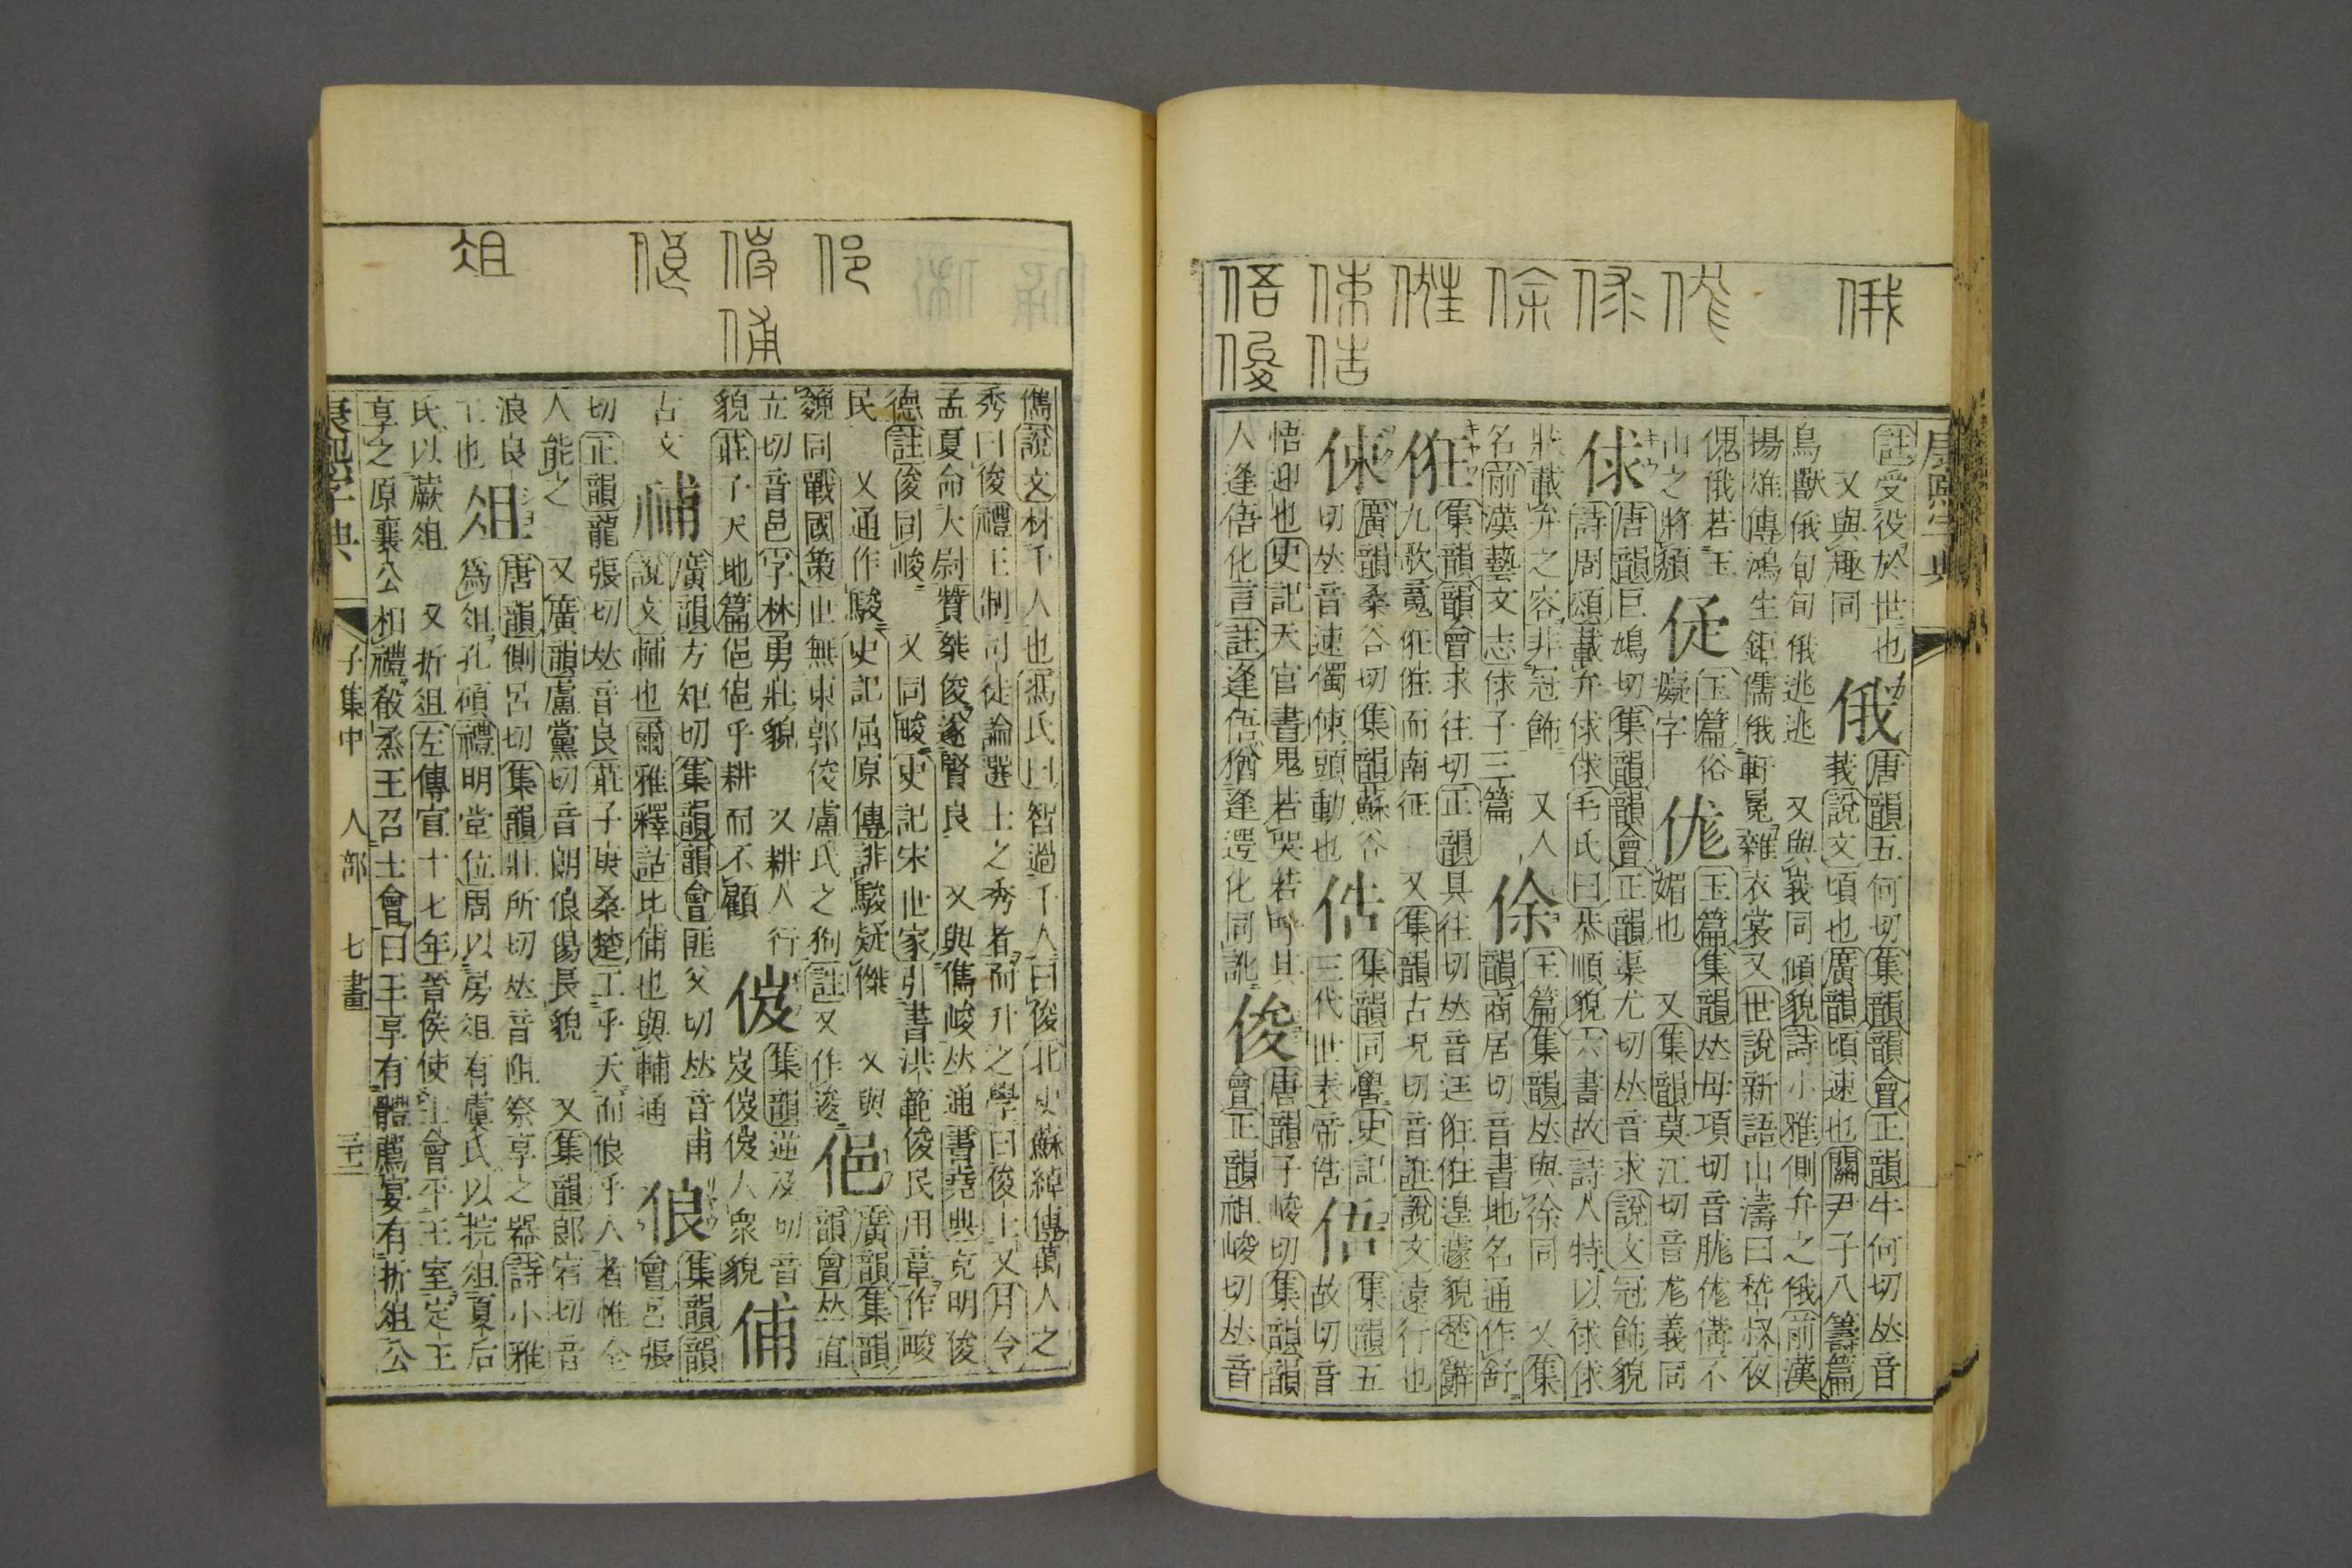 康熙字典
註受役於世也
又與趣同
俄
唐韻五何切集韻韻會正韻牛何切𠀤音
莪說文頃也廣韻頃速也關尹子八籌篇
鳥獸俄旬旬俄逃逃 又與峩同傾貌詩小雅側弁之俄前漢
揚雄傳鴻生鉅儒俄軒冕雜衣裳又世說新語山濤曰嵇叔夜
傀俄若玉
山之將頹
玉篇俗
癡字
㑻
玉篇集韻𠀤母項切音㑻不
媚也 又集韻莫江切音尨義同
俅
唐韻巨鳩切集韻韻會正韻渠尤切𠀤音求說文冠飾貌
詩周頌載弁俅俅毛氏曰恭順貌六書故詩人特以俅俅
狀載弁之容非冠飾 又人
名前漢藝文志俅子三篇
俆
玉篇集韻𠀤與徐同 又集
韻商居切音書地名通作舒
俇
集韻韻會求往切正韻具往切𠀤音迋俇俇遑遽貌楚辭
九歌䰟俇俇而南征 又集韻古况切音誑說文遠行也
㑛
廣韻桑谷切集韻蘇谷
切𠀤音速㒔㑛頭動也
俈
集韻同嚳史記
三代世表帝俈
俉
集韻五
故切音
悟迎也史記天官書鬼若哭若呼其
人逢俉化言註逢俉猶逢遻化同訛
俊
唐韻子峻切集韻韻
會正韻祖峻切𠀤音
儁說文材千人也馮氏曰智過千人曰俊北史蘇綽傳萬人之
秀曰俊禮王制司徒論選士之秀者而升之學曰俊士又月令
孟夏命大尉贊桀俊遂賢良 又與儁峻𠀤通書堯典克明俊
德註俊同峻 又同畯史記宋世家引書洪範俊民用章作畯
民 又通作駿史記屈原傳誹駿疑傑 又與
㕙同戰國策世無東郭俊盧氏之狗註又作逡
俋
廣韻集韻
韻會𠀤直
立切音邑字林勇壯貌 又耕人行
貌莊子天地篇俋俋乎耕而不顧
集韻逆及切音
岌人衆貌
俌
古文
廣韻方矩切集韻韻會匪父切𠀤音甫
說文輔也爾雅釋詁比俌也與輔通
俍
集韻韻
會呂張
切正韻龍張切𠀤音良莊子庚桑楚工乎天而俍乎人者惟全
人能之 又廣韻盧黨切音朗俍㑽長貌 又集韻郎宕切音
浪良
工也
俎
唐韻側呂切集韻壯所切𠀤音阻祭享之器詩小雅
爲俎孔碩禮明堂位周以房俎有虞氏以梡俎夏后
氏以蕨俎 又折俎左傳宣十七年晉侯使士會平王室定王
享之原襄公相禮殽烝王召士會曰王享有體薦宴有折俎公
康熙字典 子集中 人部 七畫